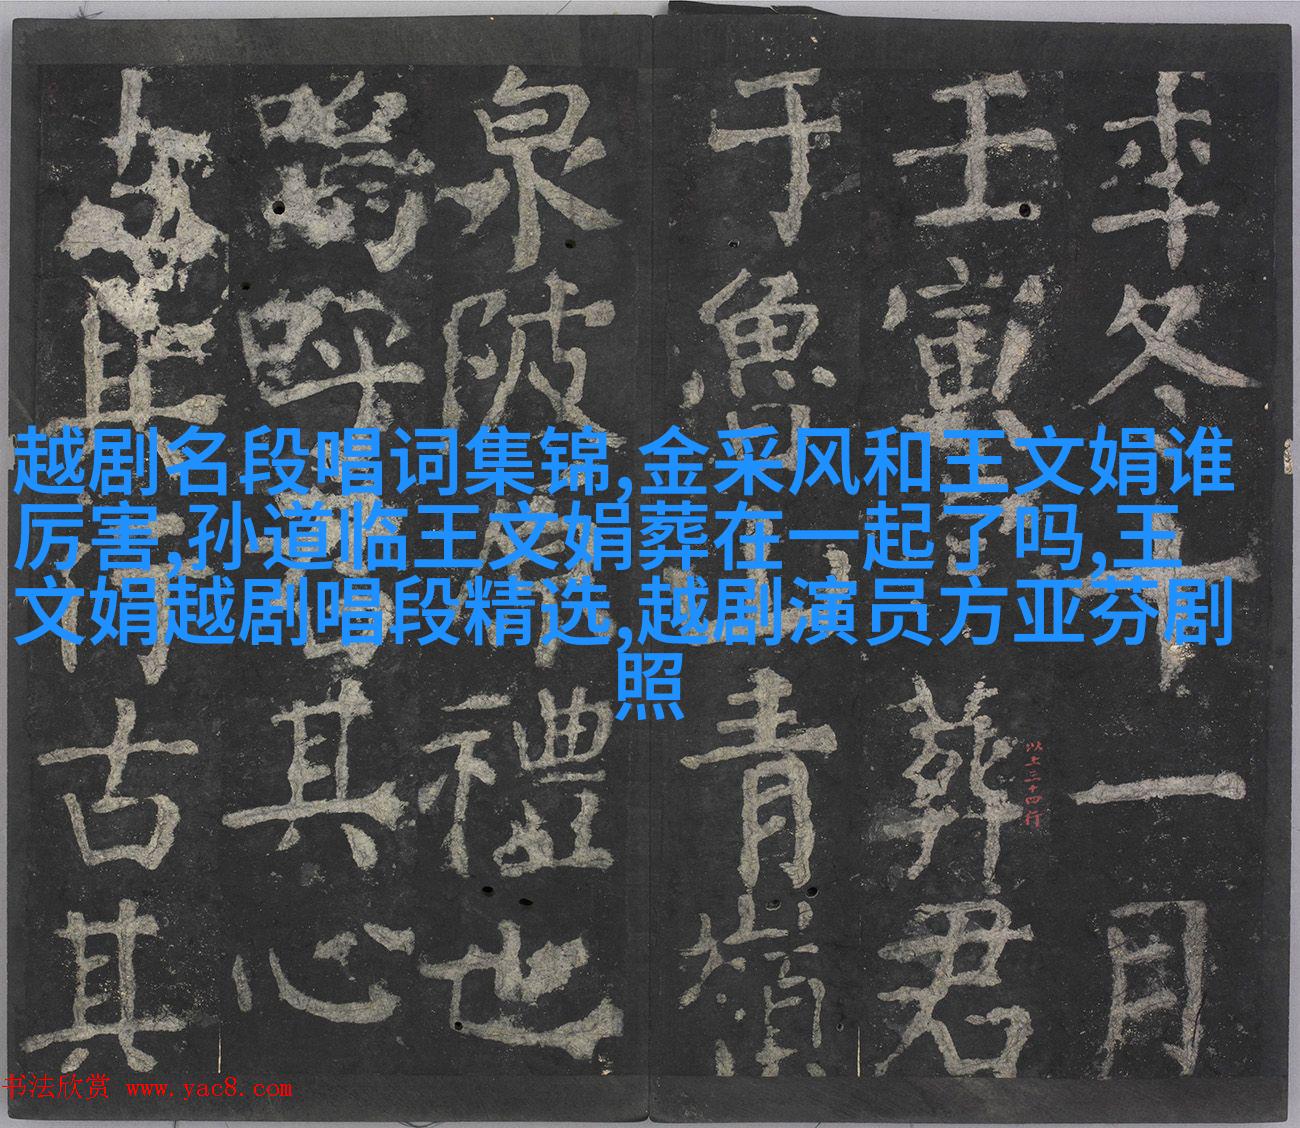 年冬十一月
壬寅葬君
于魚山青嶺
以上三十四行
泉陂禮也
嗚呼其心
古其
越剧名段唱词集锦,金采风和王文娟谁
厉害,孙道临王文娟葬在一起了吗,王
文娟越剧唱段精选,越剧演员方亚芬剧
照
书法欣赏 www.yac8.com